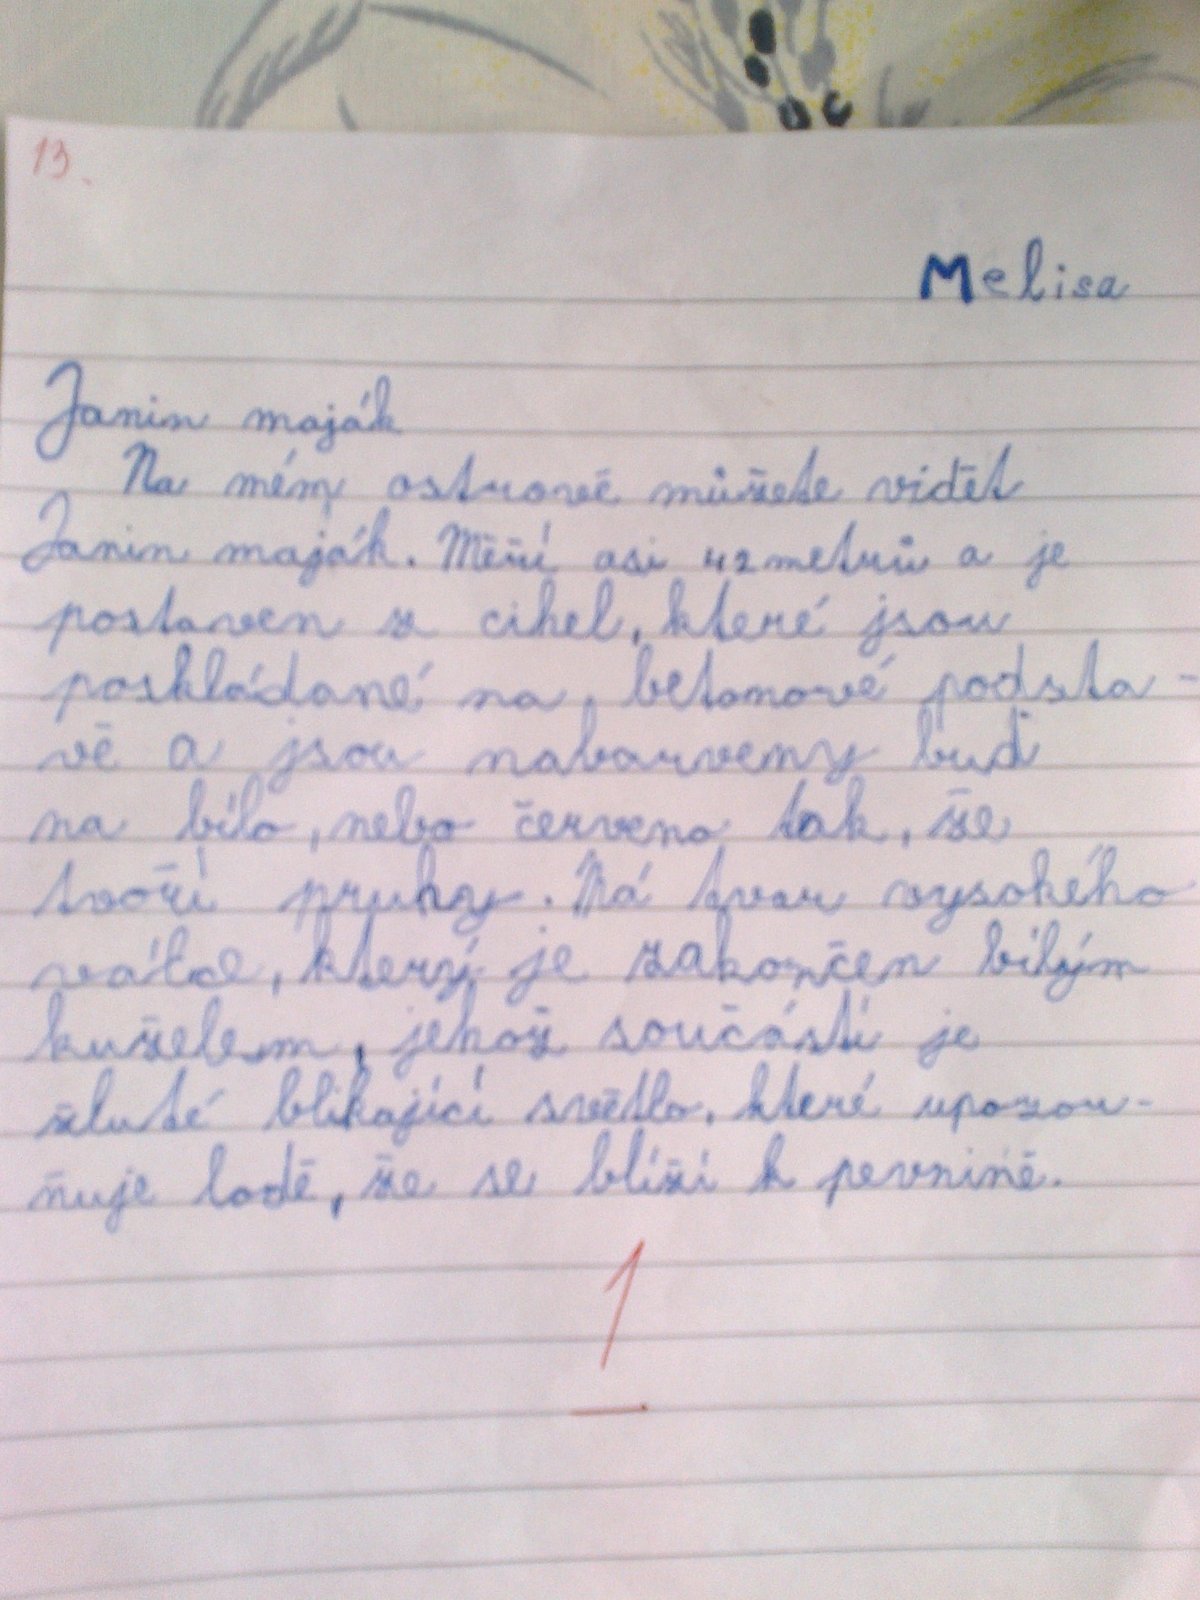 13.
Melisa
Janin maják
Na mém ostrově můžete vidět
Janin maják. Měří asi 42 metrů a je
postaven z cihel, které jsou
poskládané na betonové podsta-
vě a jsou nabarveny buď
na bílo, nebo červeno tak, že
tvoří pruhy. Má tvar vysokého
válce, který je zakončen bílým
kuželem, jehož součástí je
žluté blikající světlo, které upozor-
ňuje lodě, že se blíží k pevnině.
1